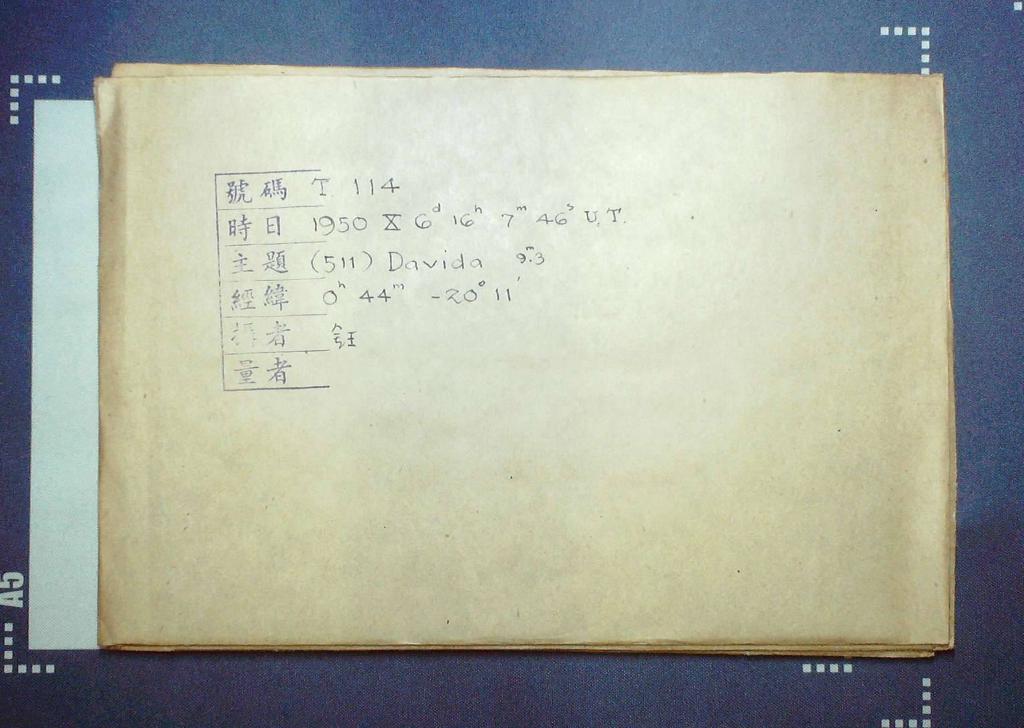 號碼 T 114
時日 1950 X 6ᵈ 16ʰ 7ᵐ 46ˢ U.T.
主題 (511) Davida 9ᵐ.3
經緯 0ʰ 44ᵐ -20° 11'
者
量者
A5